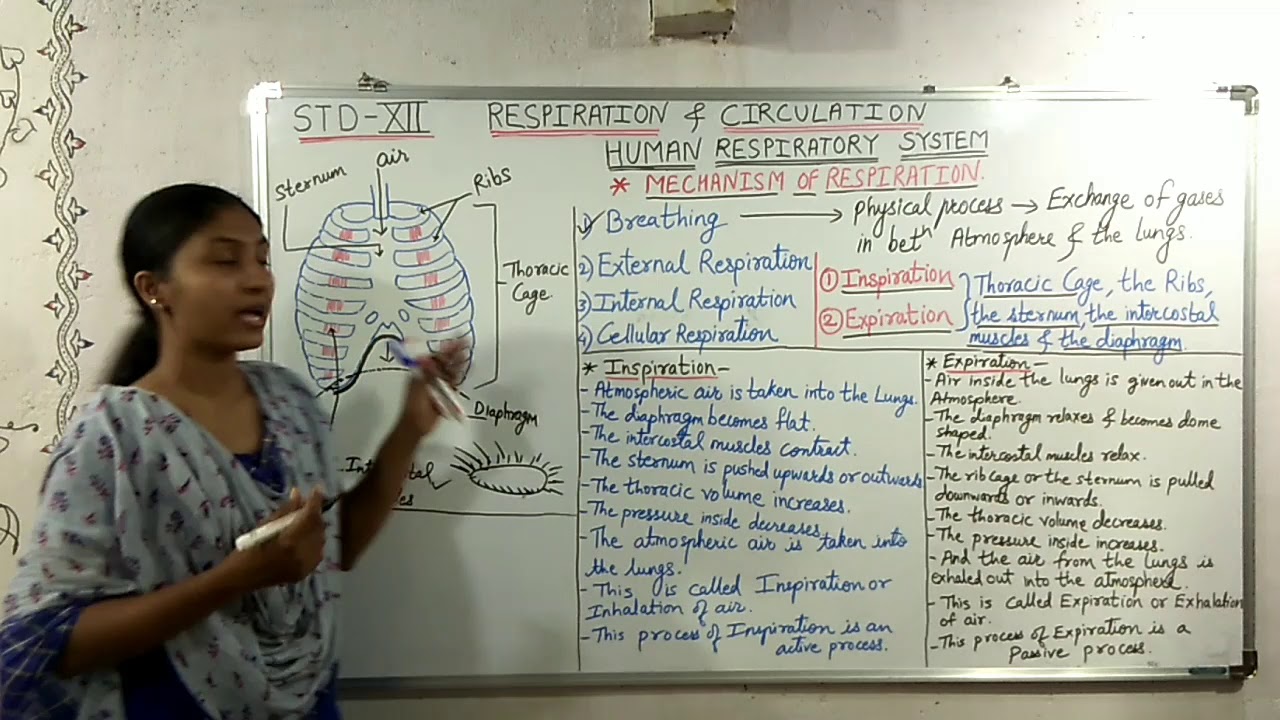 STD-XII RESPIRATION & CIRCULATION
HUMAN RESPIRATORY SYSTEM
* MECHANISM OF RESPIRATION.
sternum
air
Ribs
Thoracic
Cage.
Diaphragm
1) Breathing → Physical process → Exchange of gases
in betn Atmosphere & the lungs.
2) External Respiration
3) Internal Respiration
4) Cellular Respiration
① Inspiration
② Expiration
Thoracic Cage, the Ribs,
the sternum, the intercostal
muscles & the diaphragm.
* Inspiration-
- Atmospheric air is taken into the Lungs.
- The diaphragm becomes flat.
- The intercostal muscles contract.
- The sternum is pushed upwards or outwards
- The thoracic volume increases.
- The pressure inside decreases
- The atmospheric air is taken into
the lungs.
- This is called Inspiration or
Inhalation of air.
- This process of Inspiration is an
active process.
* Expiration-
- Air inside the lungs is given out in the
Atmosphere.
- The diaphragm relaxes & becomes dome
shaped.
- The intercostal muscles relax.
- The rib cage or the sternum is pulled
downwards or inwards.
- The thoracic volume decreases.
- The pressure inside increases.
- And the air from the lungs is
exhaled out into the atmosphere.
- This is called Expiration or Exhalation
of air.
- This process of Expiration is a
Passive process.